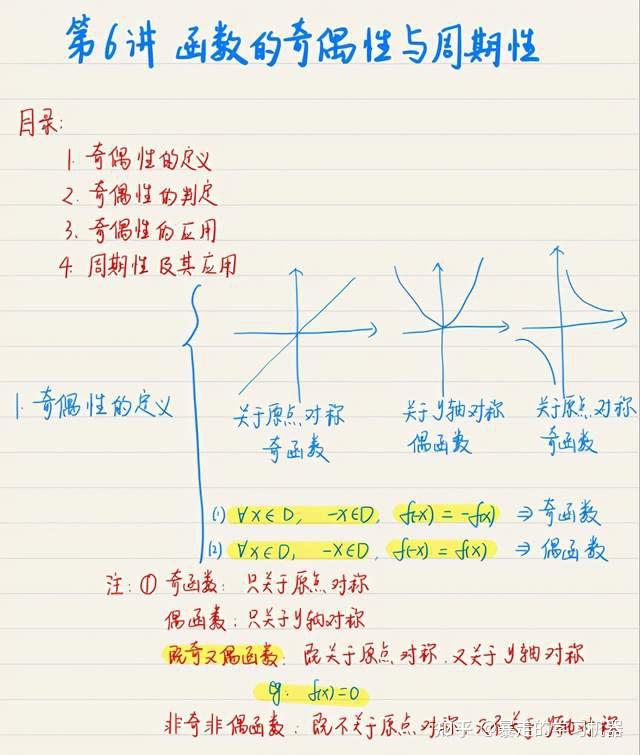 第6讲 函数的奇偶性与周期性
目录:
1. 奇偶性的定义
2. 奇偶性的判定
3. 奇偶性的应用
4. 周期性及其应用
1. 奇偶性的定义
关于原点对称 关于y轴对称 关于原点对称
奇函数 偶函数 奇函数
(1) ∀x∈D, -x∈D, f(-x) = -f(x) ⇒ 奇函数
(2) ∀x∈D, -x∈D, f(-x) = f(x) ⇒ 偶函数
注: ① 奇函数: 只关于原点对称
偶函数: 只关于y轴对称
既奇又偶函数: 既关于原点对称,又关于y轴对称
eg. f(x)=0
非奇非偶函数: 既不关于原点对称 又不关于y轴对称
知乎 @暴走的学习机器